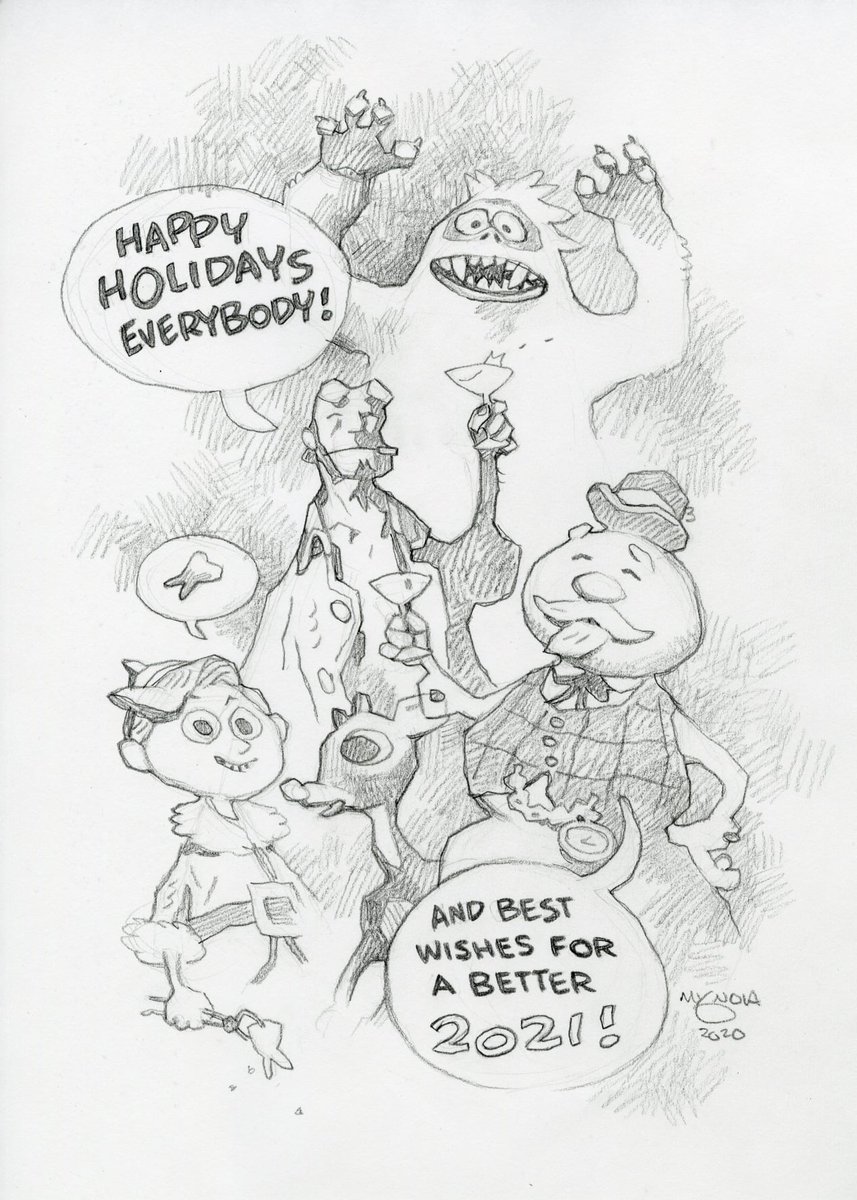 HAPPY
HOLIDAYS
EVERYBODY!
AND BEST
WISHES FOR
A BETTER
2021!
MIGNOLA
2020